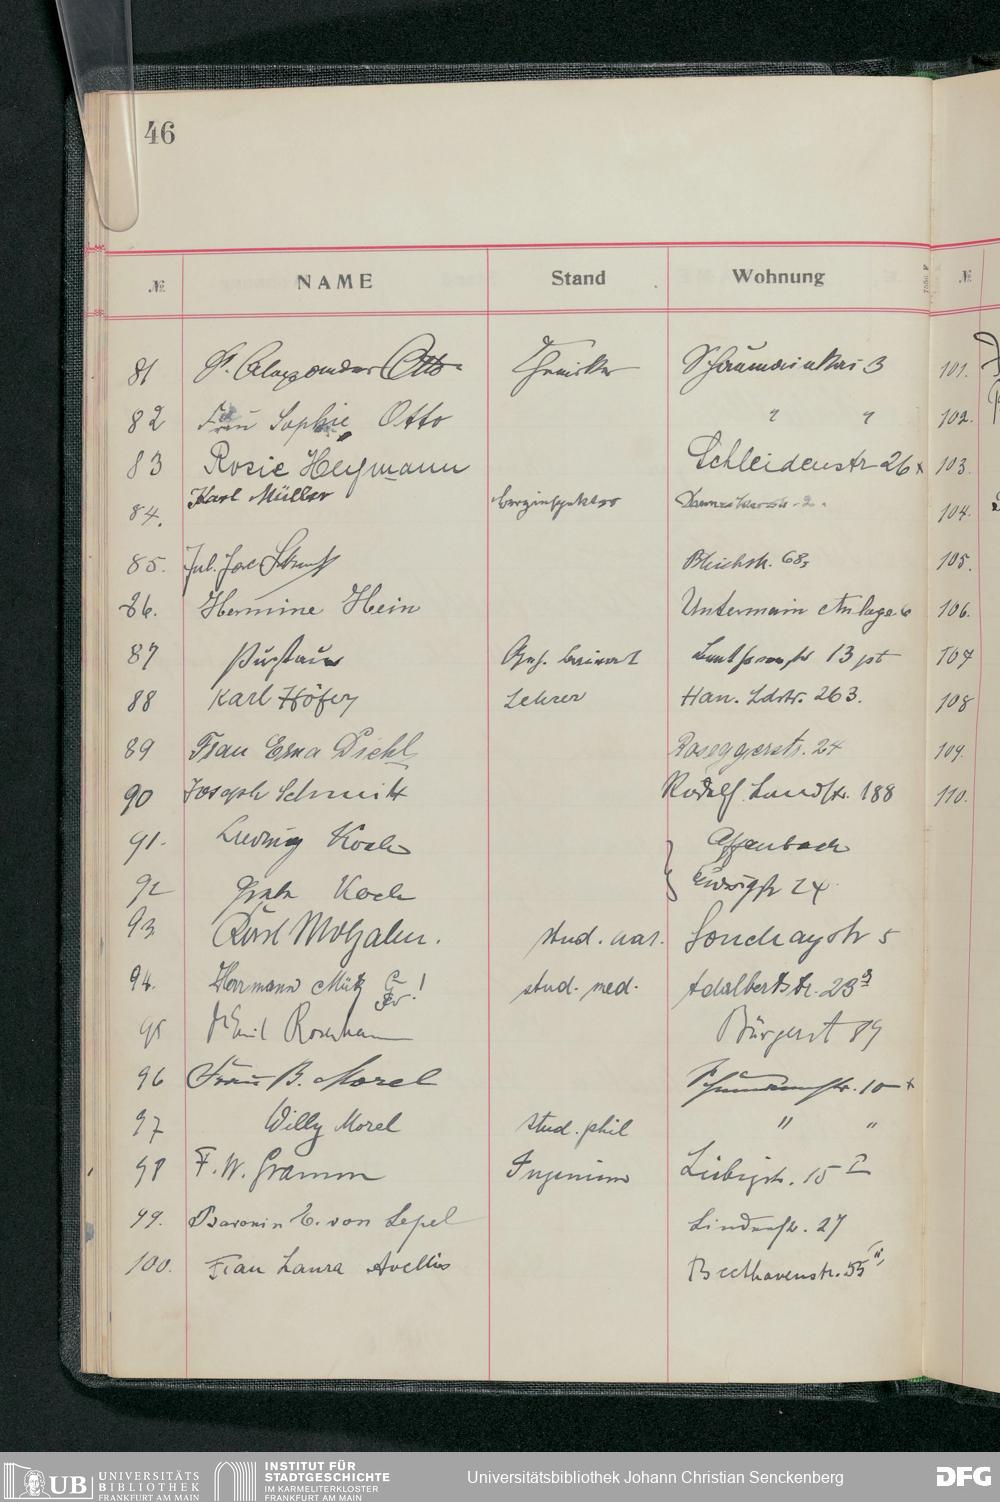 46
№ NAME Stand Wohnung №
81 Dr. Alexander Otto Chemiker Schaumainkai 3 101.
82 Frau Sophie Otto " " 102.
83 Rosie Heymann Schleidenstr 26 103
84. Karl Müller 2. 104.
85. Jul. Bleichstr. 68 105.
86. Hermine Hein Untermain Anlage 6 106.
87 13 pt 107
88 Karl Höfer Lehrer Han. Ldstr. 263. 108
89 Frau Erna Diehl Roseggerstr. 24 109.
90 Joseph Schmitt Rödelh. Landstr. 188 110.
91. Ludwig Koch Offenbach
92 Greta Koch Ludwigstr 24
93 Karl Molzahn. stud. nat. Souchaystr 5
94. Herrmann Mütz stud. med. Adalbertstr. 23
95 Emil Bürgerst 89
96 Frau B. Morel 10
97 Willy Morel stud. phil " "
98 F. W. Gramm Ingenieur Liebigstr. 15 I
99. Baronin E. von Lepel Lindenstr. 27
100. Frau Laura Avellis Beethovenstr. 55
UB UNIVERSITÄTS
BIBLIOTHEK
FRANKFURT AM MAIN
INSTITUT FÜR
STADTGESCHICHTE
IM KARMELITERKLOSTER
FRANKFURT AM MAIN
Universitätsbibliothek Johann Christian Senckenberg
DFG